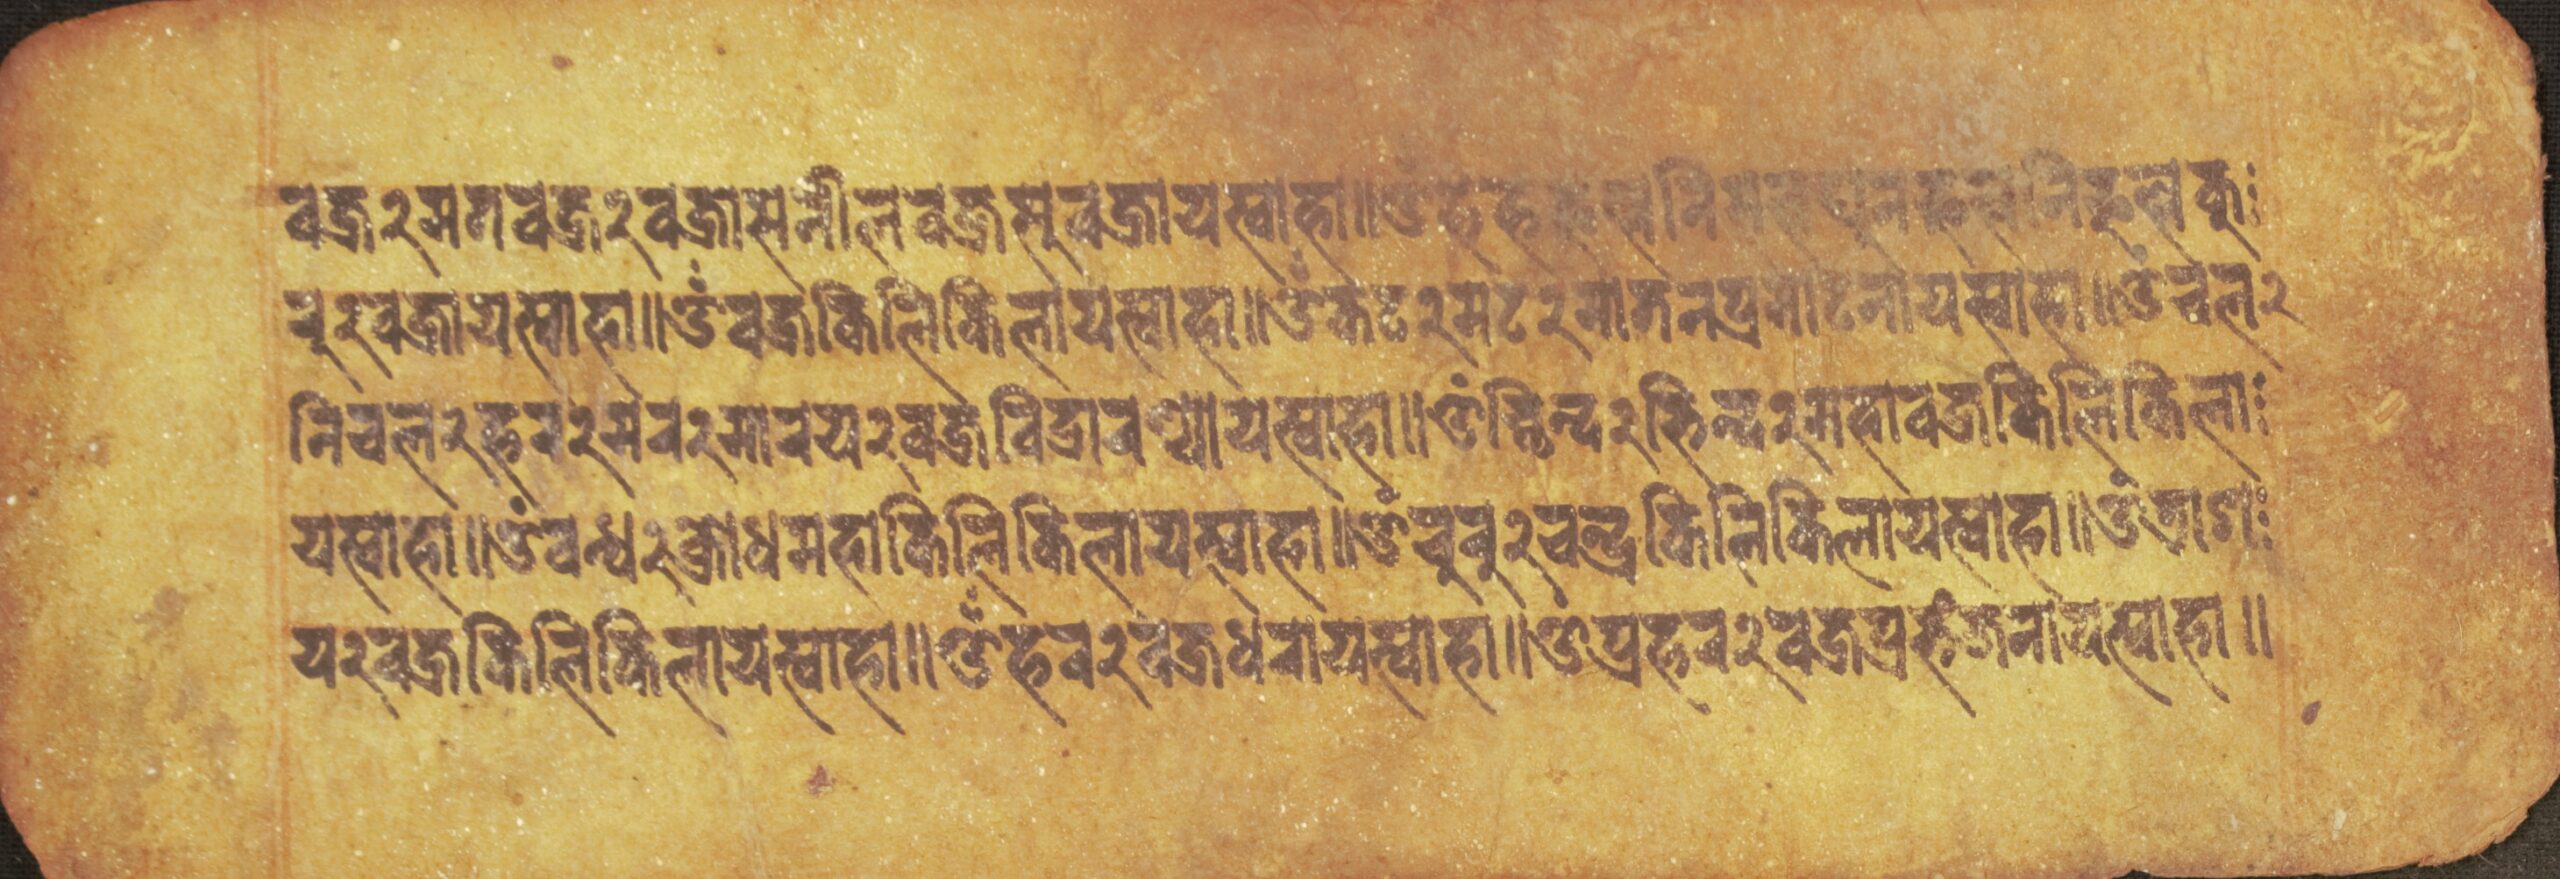 वज्र२मतवज्र२वज्रासनीलवज्रसुवज्रायस्वाहा॥ॐ
चुरु२वज्रायस्वाहा॥ॐवज्रकिलिकिलायस्वाहा॥ॐकट२मट२माटनप्रमाटनायस्वाहा॥ॐचल२
निचल२हर२मर२मारय२वज्रविद्रारण्यायस्वाहा॥ॐच्छिन्द२भिन्द२महावज्रकिलिकिलाः
यस्वाहा॥ॐवन्ध२क्रोधमहाकिलिकिलायस्वाहा॥ॐचुरु२चन्द्रकिलिकिलायस्वाहा॥ॐत्राशः
य२वज्रकिलिकिलायस्वाहा॥ॐहर२वज्रधरायस्वाहा॥ॐप्रहर२वज्रप्रभंजनायस्वाहा॥